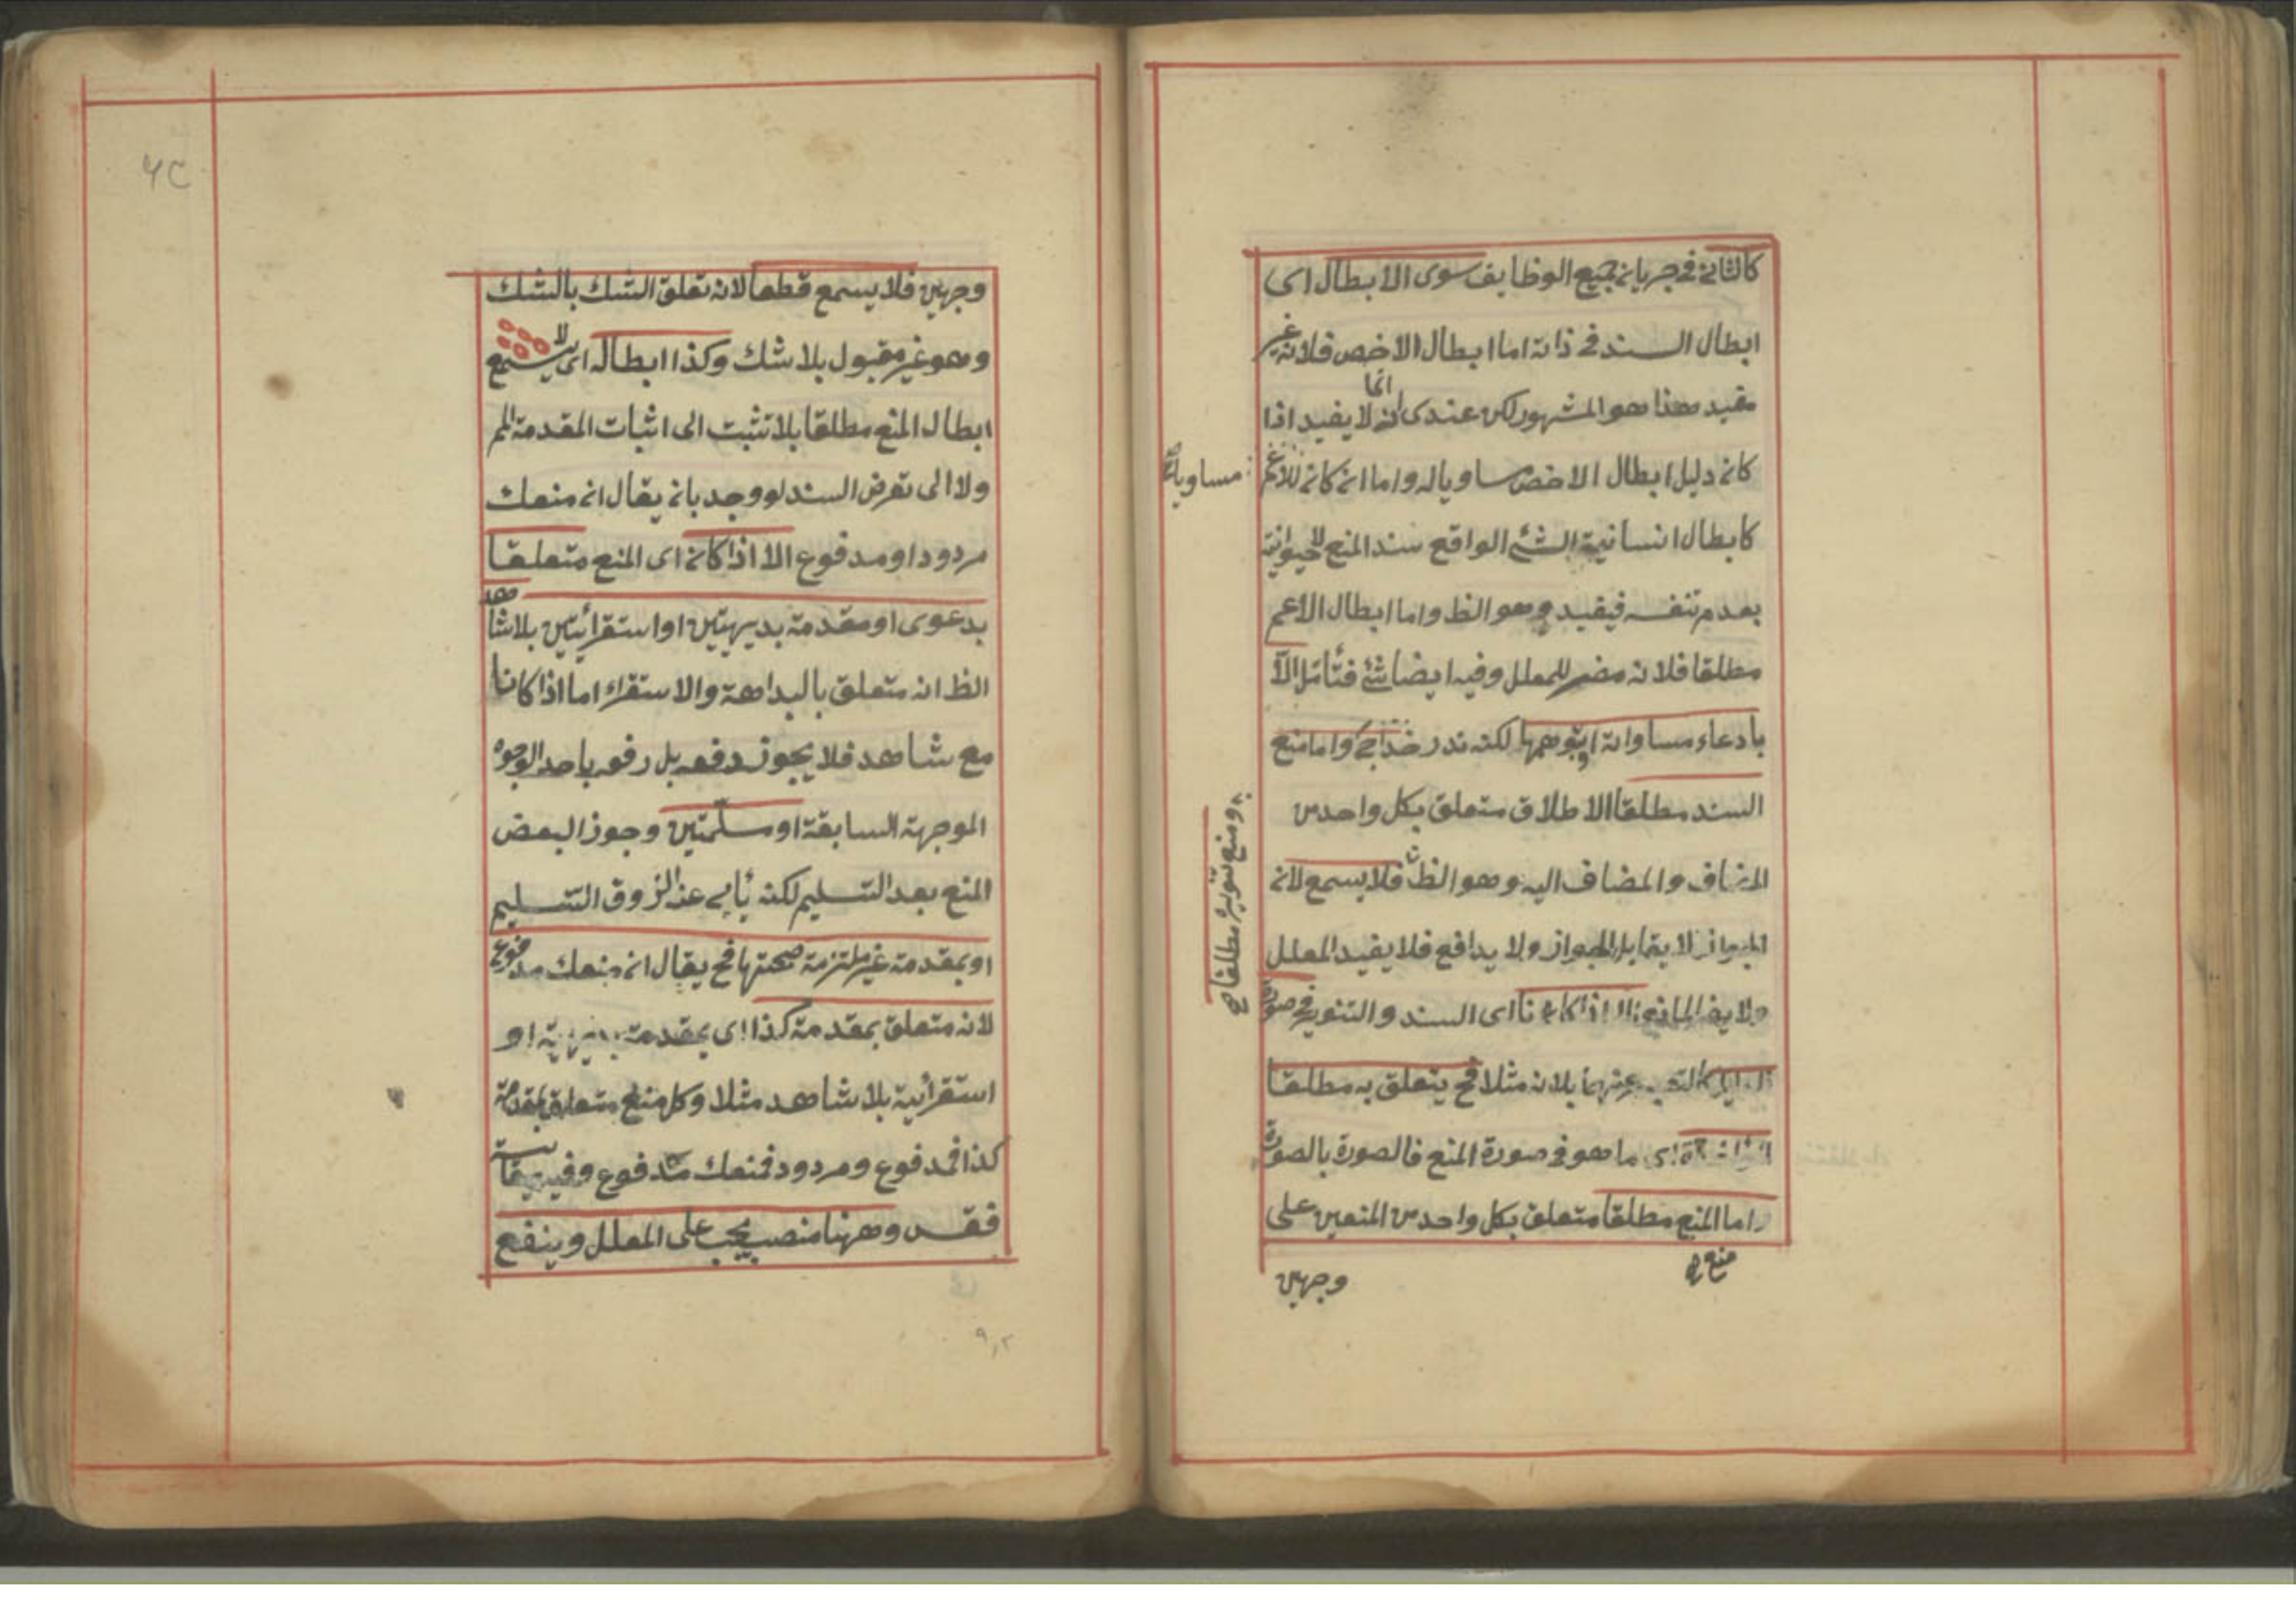 كالثاني في جريان جميع الوظايف سوى الابطال اى
ابطال السند في ذاته اما ابطال الاخص فلانه غير
مفيد هذا هو المشهور لكن عندى انه انما لا يفيد اذا
كان دليل ابطال الاخص مساويا له واما ان كان للاعم
مساويا
كابطال انسانية الشئ الواقع سند المنع لاحيوانيته
بعدم تنفسه فيفيد وهو الظ واما ابطال الاعم
مطلقا فلانه مضر للمعلل وفيه ايضا شئ فتأمل الا
بادعاء مساواته او بتوهمها لكنه ندر واما منع
السند مطلقا الاطلاق متعلق بكل واحد من
المضاف والمضاف اليه وهو الظ فلا يسمع لان
ومنع تنويره مطلقا صح
الجواز لا يقابل الجواز ولا يدافع فلا يفيد المعلل
ولا يضر المانع الا اذا كانا اى السند والتنوير في صورة
الدليل كالتعبير عنهما بلانه مثلا فح يتعلق به مطلقا
اى ما هو في صورة المنع فالصورة بالصورة
واما المنع مطلقا متعلق بكل واحد من المنعين على
منع
وجهين
٦٢
وجهين فلا يسمع قطعا لانه تعلق الشك بالشك
وهو غير مقبول بلا شك وكذا ابطاله اى لا يسمع
ابطال المنع مطلقا بلا تشبث الى اثبات المقدمة المم
ولا الى تعرض السند لو وجد بان يقال ان منعك
مردود او مدفوع الا اذا كان اى المنع متعلقا
بدعوى او مقدمة بديهيتين او استقرائيتين بلا شاهد
الظ انه متعلق بالبداهة والاستقراء اما اذا كانا
مع شاهد فلا يجوز دفعه بل رفعه باحد الوجوه
الموجهة السابقة او مسلمتين وجوز البعض
المنع بعد التسليم لكنه يأبى عنه الذوق السليم
او بمقدمة غير ملتزمة صحتها فح يقال ان منعك مدفوع
لانه متعلق بمقدمة كذا اى بمقدمة بديهية او
استقرائية بلا شاهد مثلا وكل منع متعلق بمقدمة
كذا فمدفوع ومردود فمنعك مدفوع وفيه
فقس وههنا منصب يجب على المعلل وينفع